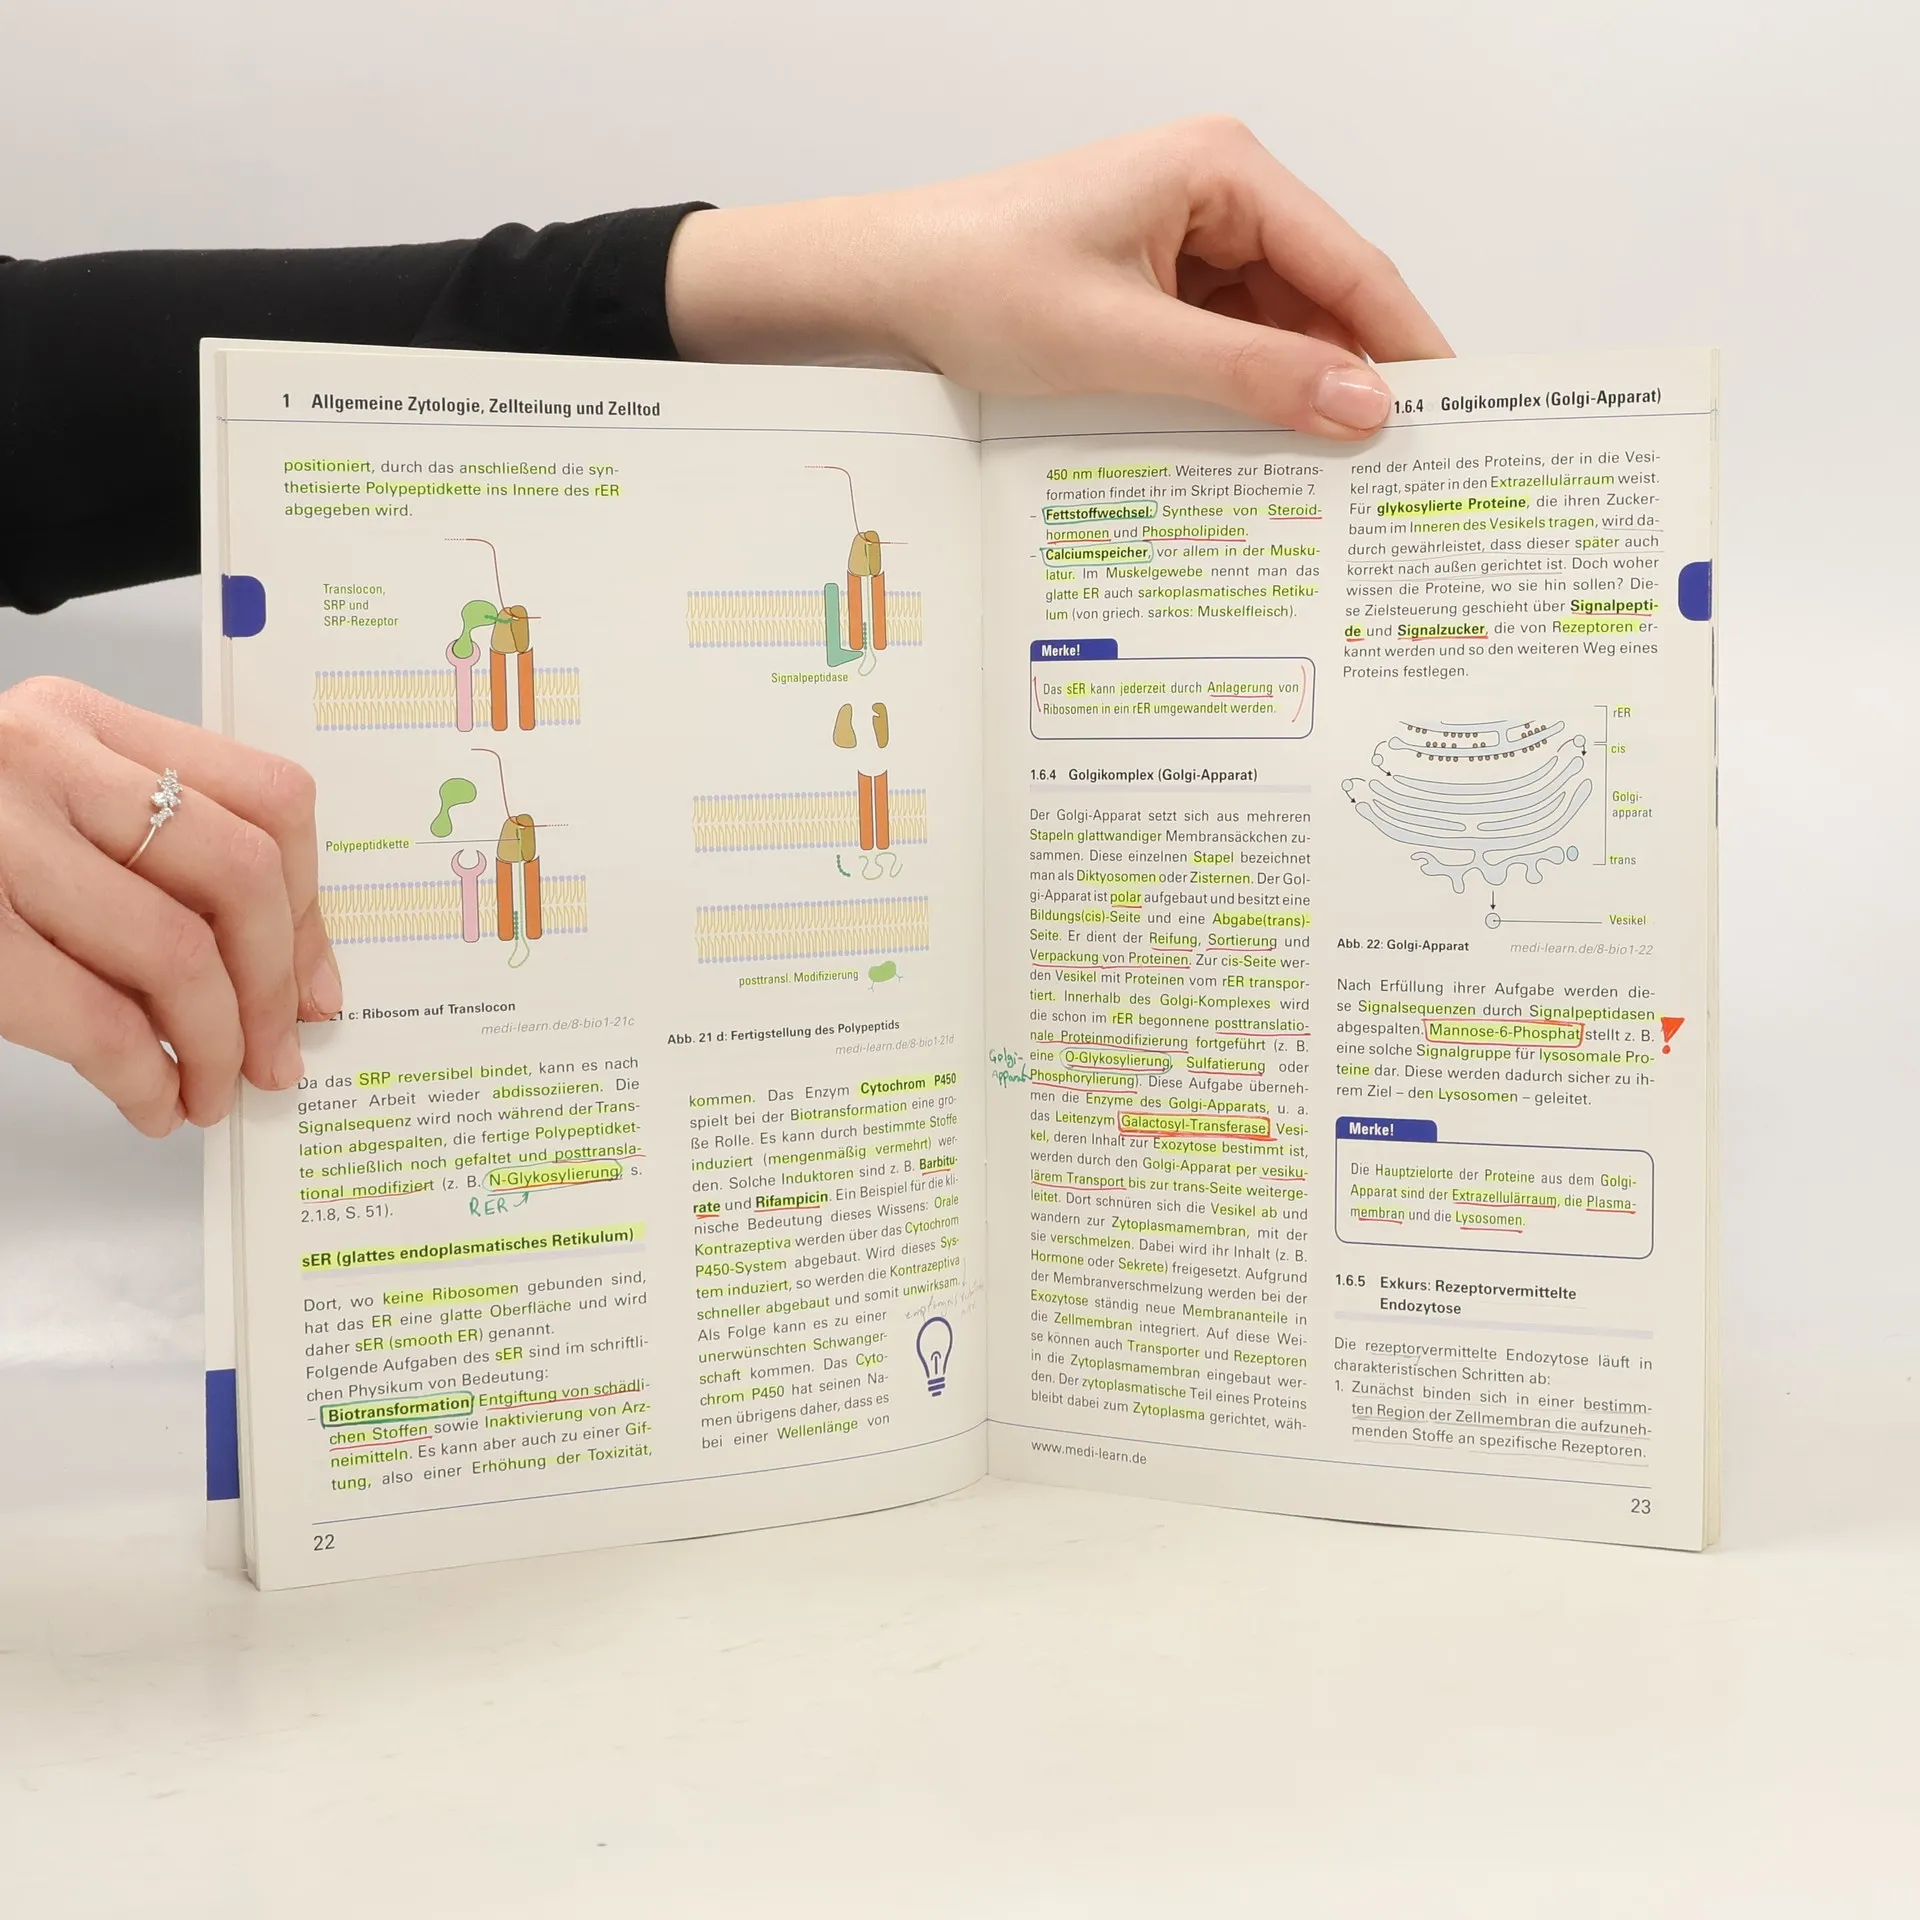 1 Allgemeine Zytologie, Zellteilung und Zelltod
positioniert, durch das anschließend die syn-
thetisierte Polypeptidkette ins Innere des rER
abgegeben wird.
Translocon,
SRP und
SRP-Rezeptor
Polypeptidkette
21 c: Ribosom auf Translocon
medi-learn.de/8-bio1-21c
Da das SRP reversibel bindet, kann es nach
getaner Arbeit wieder abdissoziieren. Die
Signalsequenz wird noch während der Trans-
lation abgespalten, die fertige Polypeptidket-
te schließlich noch gefaltet und posttransla-
tional modifiziert (z. B. N-Glykosylierung, s.
2.1.8, S. 51).
RER
sER (glattes endoplasmatisches Retikulum)
Dort, wo keine Ribosomen gebunden sind,
hat das ER eine glatte Oberfläche und wird
daher sER (smooth ER) genannt.
Folgende Aufgaben des sER sind im schriftli-
chen Physikum von Bedeutung:
– Biotransformation: Entgiftung von schädli-
chen Stoffen sowie Inaktivierung von Arz-
neimitteln. Es kann aber auch zu einer Gif-
tung, also einer Erhöhung der Toxizität,
Signalpeptidase
posttransl. Modifizierung
Abb. 21 d: Fertigstellung des Polypeptids
medi-learn.de/8-bio1-21d
kommen. Das Enzym Cytochrom P450
spielt bei der Biotransformation eine gro-
ße Rolle. Es kann durch bestimmte Stoffe
induziert (mengenmäßig vermehrt) wer-
den. Solche Induktoren sind z. B. Barbitu-
rate und Rifampicin. Ein Beispiel für die kli-
nische Bedeutung dieses Wissens: Orale
Kontrazeptiva werden über das Cytochrom
P450-System abgebaut. Wird dieses Sys-
tem induziert, so werden die Kontrazeptiva
schneller abgebaut und somit unwirksam.
Als Folge kann es zu einer
unerwünschten Schwanger-
schaft kommen. Das Cyto-
chrom P450 hat seinen Na-
men übrigens daher, dass es
bei einer Wellenlänge von
22
1.6.4 Golgikomplex (Golgi-Apparat)
450 nm fluoresziert. Weiteres zur Biotrans-
formation findet ihr im Skript Biochemie 7.
– Fettstoffwechsel: Synthese von Steroid-
hormonen und Phospholipiden.
– Calciumspeicher, vor allem in der Musku-
latur. Im Muskelgewebe nennt man das
glatte ER auch sarkoplasmatisches Retiku-
lum (von griech. sarkos: Muskelfleisch).
Merke!
Das sER kann jederzeit durch Anlagerung von
Ribosomen in ein rER umgewandelt werden.
1.6.4 Golgikomplex (Golgi-Apparat)
Der Golgi-Apparat setzt sich aus mehreren
Stapeln glattwandiger Membransäckchen zu-
sammen. Diese einzelnen Stapel bezeichnet
man als Diktyosomen oder Zisternen. Der Gol-
gi-Apparat ist polar aufgebaut und besitzt eine
Bildungs(cis)-Seite und eine Abgabe(trans)-
Seite. Er dient der Reifung, Sortierung und
Verpackung von Proteinen. Zur cis-Seite wer-
den Vesikel mit Proteinen vom rER transpor-
tiert. Innerhalb des Golgi-Komplexes wird
die schon im rER begonnene posttranslatio-
nale Proteinmodifizierung fortgeführt (z. B.
eine O-Glykosylierung, Sulfatierung oder
Phosphorylierung). Diese Aufgabe überneh-
men die Enzyme des Golgi-Apparats, u. a.
das Leitenzym Galactosyl-Transferase. Vesi-
kel, deren Inhalt zur Exozytose bestimmt ist,
werden durch den Golgi-Apparat per vesiku-
lärem Transport bis zur trans-Seite weiterge-
leitet. Dort schnüren sich die Vesikel ab und
wandern zur Zytoplasmamembran, mit der
sie verschmelzen. Dabei wird ihr Inhalt (z. B.
Hormone oder Sekrete) freigesetzt. Aufgrund
der Membranverschmelzung werden bei der
Exozytose ständig neue Membrananteile in
die Zellmembran integriert. Auf diese Wei-
se können auch Transporter und Rezeptoren
in die Zytoplasmamembran eingebaut wer-
den. Der zytoplasmatische Teil eines Proteins
bleibt dabei zum Zytoplasma gerichtet, wäh-
Golgi-
Apparat
www.medi-learn.de
rend der Anteil des Proteins, der in die Vesi-
kel ragt, später in den Extrazellulärraum weist.
Für glykosylierte Proteine, die ihren Zucker-
baum im Inneren des Vesikels tragen, wird da-
durch gewährleistet, dass dieser später auch
korrekt nach außen gerichtet ist. Doch woher
wissen die Proteine, wo sie hin sollen? Die-
se Zielsteuerung geschieht über Signalpepti-
de und Signalzucker, die von Rezeptoren er-
kannt werden und so den weiteren Weg eines
Proteins festlegen.
rER
cis
Golgi-
apparat
trans
Vesikel
Abb. 22: Golgi-Apparat
medi-learn.de/8-bio1-22
Nach Erfüllung ihrer Aufgabe werden die-
se Signalsequenzen durch Signalpeptidasen
abgespalten. Mannose-6-Phosphat stellt z. B.
eine solche Signalgruppe für lysosomale Pro-
teine dar. Diese werden dadurch sicher zu ih-
rem Ziel – den Lysosomen – geleitet.
!
Merke!
Die Hauptzielorte der Proteine aus dem Golgi-
Apparat sind der Extrazellulärraum, die Plasma-
membran und die Lysosomen.
1.6.5 Exkurs: Rezeptorvermittelte
Endozytose
Die rezeptorvermittelte Endozytose läuft in
charakteristischen Schritten ab:
1. Zunächst binden sich in einer bestimm-
ten Region der Zellmembran die aufzuneh-
menden Stoffe an spezifische Rezeptoren.
23